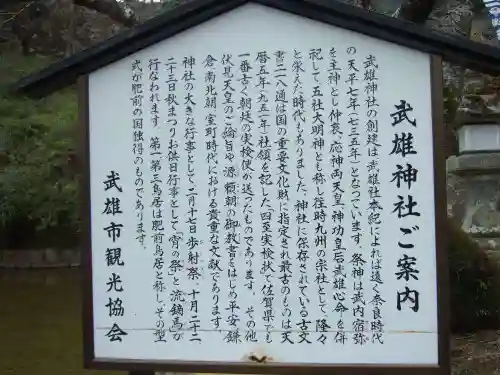 武雄神社ご案内
武雄神社の創建は武雄社本紀によれば遠く奈良時代
の天平七年(七三五年)となっています。祭神は武内宿弥
を主神とし仲哀、応神両天皇神功皇后、武雄心命を併
祀して五社大明神とも称し往時九州の宗社として、隆々
と栄えた時代もありました。神社に保存されている古文
書二一八通は国の重要文化財に指定され最古のものは天
暦五年(九五一年)社領を記した「四至実検状」で佐賀県でも
一番古く朝廷の実検使が送ったものであります。その他
伏見天皇のご綸旨や源頼朝の御教書をはじめ平安、鎌
倉南北朝、室町時代における貴重な文献であります。
神社の大きな行事として、二月十七日歩射祭、十月二十二
二十三日秋まつりお供日行事として「宵の祭」と流鏑馬が
行なわれます。第一第三鳥居は肥前鳥居と称し、その型
式が肥前の国独得のものであります。
武雄市観光協会